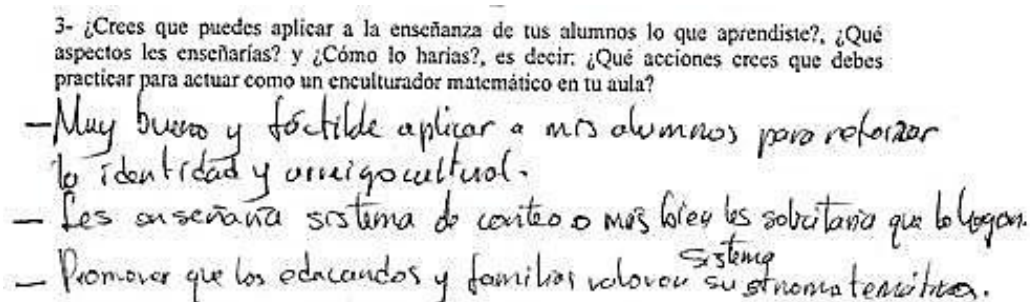 3- ¿Crees que puedes aplicar a la enseñanza de tus alumnos lo que aprendiste?, ¿Qué
aspectos les enseñarías? y ¿Cómo lo harias?, es decir: ¿Qué acciones crees que debes
practicar para actuar como un enculturador matemático en tu aula?
- Muy bueno y fáctilde aplicar a mis alumnos para reforzar
la identidad y arraigo cultural.
- Les enseñaría sistema de conteo o más bien les solicitaria que lo hagan.
sistema
- Promover que los educandos y familias valoren su etnomatemática.